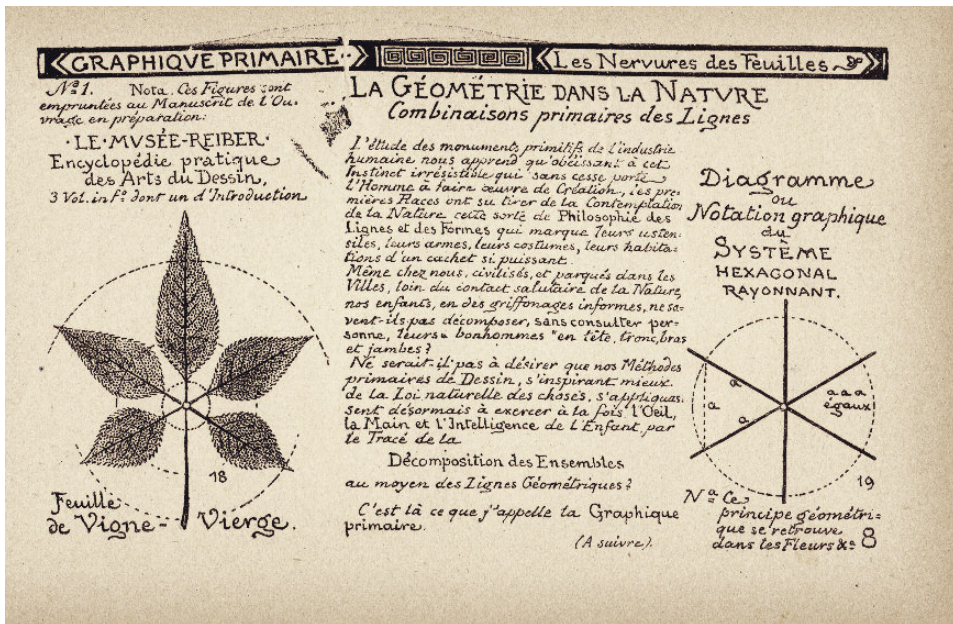 GRAPHIQVE PRIMAIRE
Les Nervures des Feuilles
Nº1. Nota. Ces Figures sont
empruntées au Manuscrit de l'Ou-
vrage en préparation:
·LE·MVSÉE-REIBER·
Encyclopédie pratique
des Arts du Dessin,
3 Vol. in Fº dont un d'Introduction
18
Feuille
de Vigne-Vierge.
LA GÉOMÉTRIE DANS LA NATVRE
Combinaisons primaires des Lignes
L'étude des monuments primitifs de l'industrie
humaine nous apprend qu'obéissant à cet
Instinct irrésistible qui sans cesse porte
l'Homme à faire œuvre de Création, les pre-
mières Races ont su tirer de la Contemplation
de la Nature cette sorte de Philosophie des
Lignes et des Formes qui marque leurs usten-
siles, leurs armes, leurs costumes, leurs habita-
tions d'un cachet si puissant.
Même chez nous, civilisés, et parqués dans les
Villes, loin du contact salutaire de la Nature,
nos enfants, en des griffonages informes, ne sa-
vent-ils pas décomposer, sans consulter per-
sonne, leurs "bonhommes" en tête, tronc, bras
et jambes?
Ne serait-il pas à désirer que nos Méthodes
primaires de Dessin, s'inspirant mieux
de la Loi naturelle des choses, s'appliquas-
sent désormais à exercer à la fois l'Oeil,
la Main et l'Intelligence de l'Enfant, par
le Tracé de la
Décomposition des Ensembles
au moyen des Lignes Géométriques?
C'est là ce que j'appelle la Graphique
primaire.
(A suivre).
Diagramme
ou
Notation graphique
du
SYSTÈME
HEXAGONAL
RAYONNANT.
a
a
a
a a a
égaux
19
Nª Ce
principe géométri-
que se retrouve
dans les Fleurs &ª
8